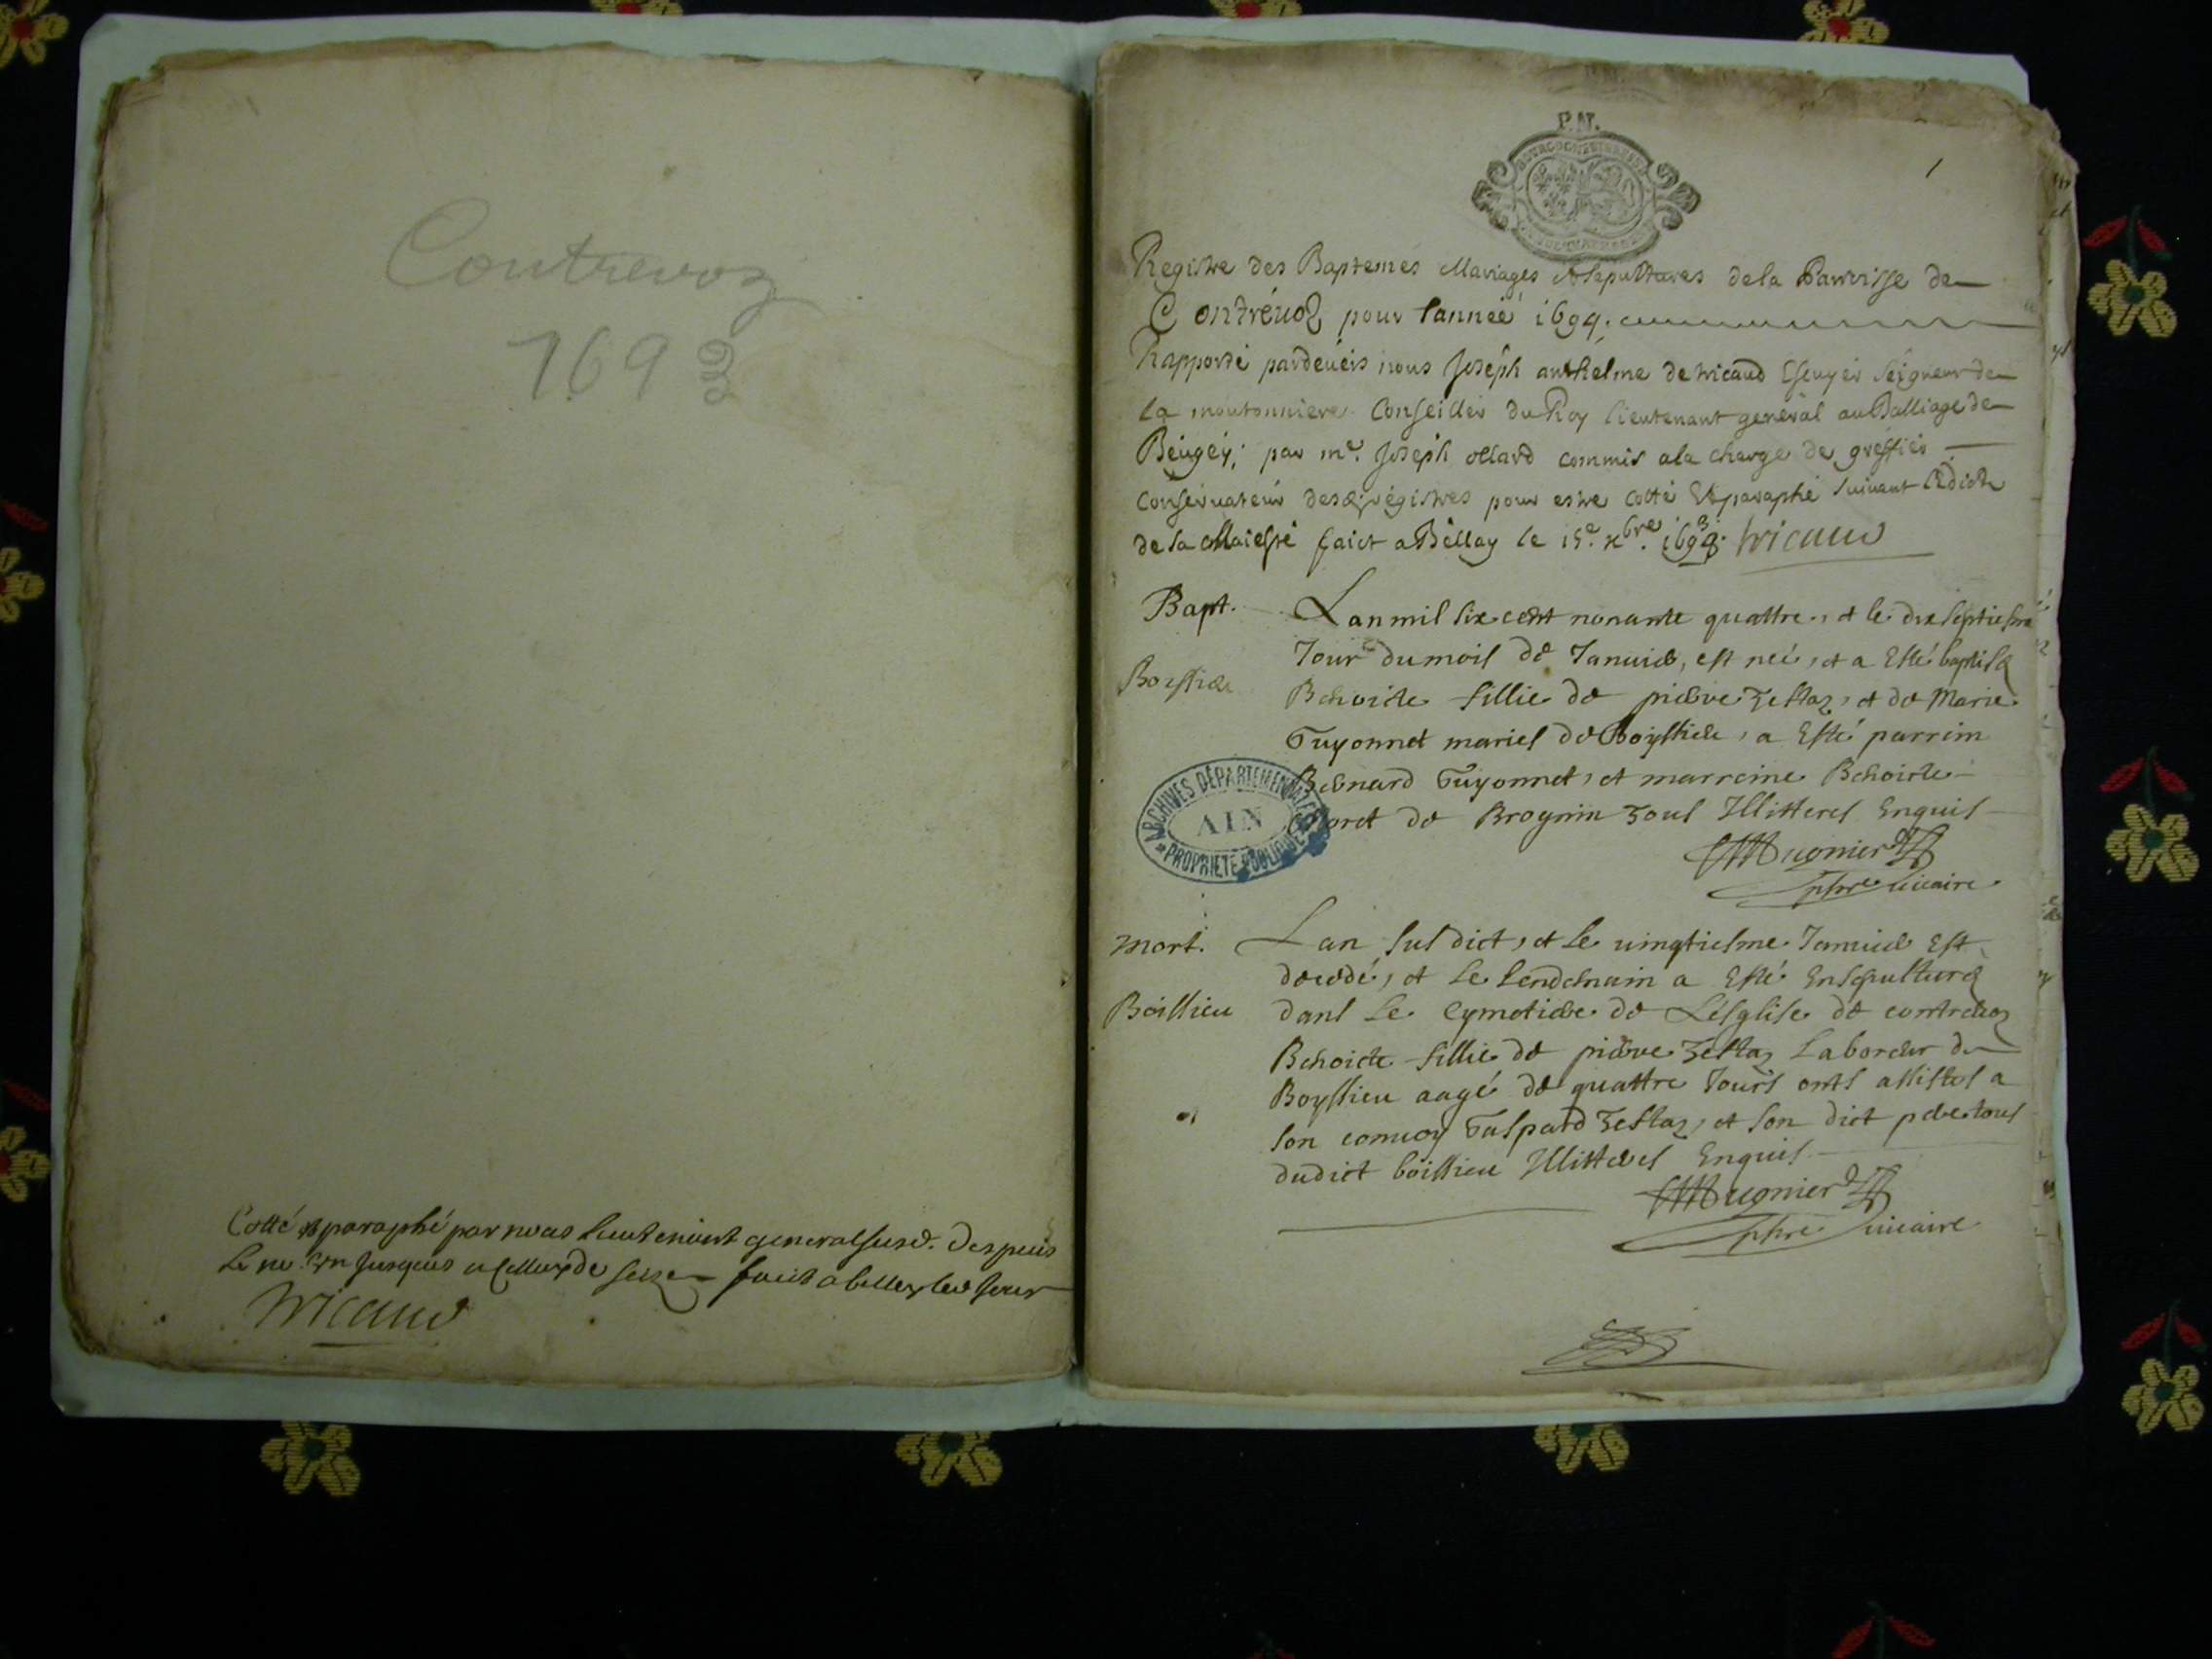 Contrevoz
1693
Cotté et paraphé par nous lieutenant general susd. Despuis
Le nu. un jusques a celluy de seize faict a belley led jour
Tricaud
P.N.
1
Registre des Baptemes Mariages et sepultures de la Parroisse de
Contrévoz pour l'année 1694.
Rapporté pardevers nous Joseph anthelme de tricaud Escuyer Seigneur de
la moutonniere Conseiller du Roy lieutenant general au Balliage de
Beugey; par me. Joseph ollard commis a la charge de greffier
Conservateur desd. régistres pour estre cotté Et paraphé suivant l'Edict
de sa Maiesté faict a Béllay le 15e. xbre. 1693. tricaud
Bapt.
Lan mil six cent nonante quattre, et le dix septiesme
Jour du mois de Januier, est neé, et a Esté baptisé
Boissieu
Benoicte fillie de pierre Testaz, et de Marie
Guyonnet mariés de Boyssieu, a Esté parrein
Bernard Guyonnet, et marreine Benoicte
de Brognin Tous Illitterés Enquis
Mugnier
pbre vicaire
ARCHIVES DÉPARTEMENTALES
AIN
PROPRIETE PUBLIQUE
Mort.
Lan sus dict, et Le uingtiesme Januier Est
decedé, et Le Lendemain a Esté Ensepulturé
Boissieu
dans Le Cymetiere de L'ésglise de contrevoz
Benoicte fillie de pierre Testaz Laboreur de
Boyssieu aagé de quattre Jours onts assistes a
son conuoy Gaspard Testaz, et son dict pere tous
dudict boissieu Illitterés Enquis
Mugnier
pbre vicaire